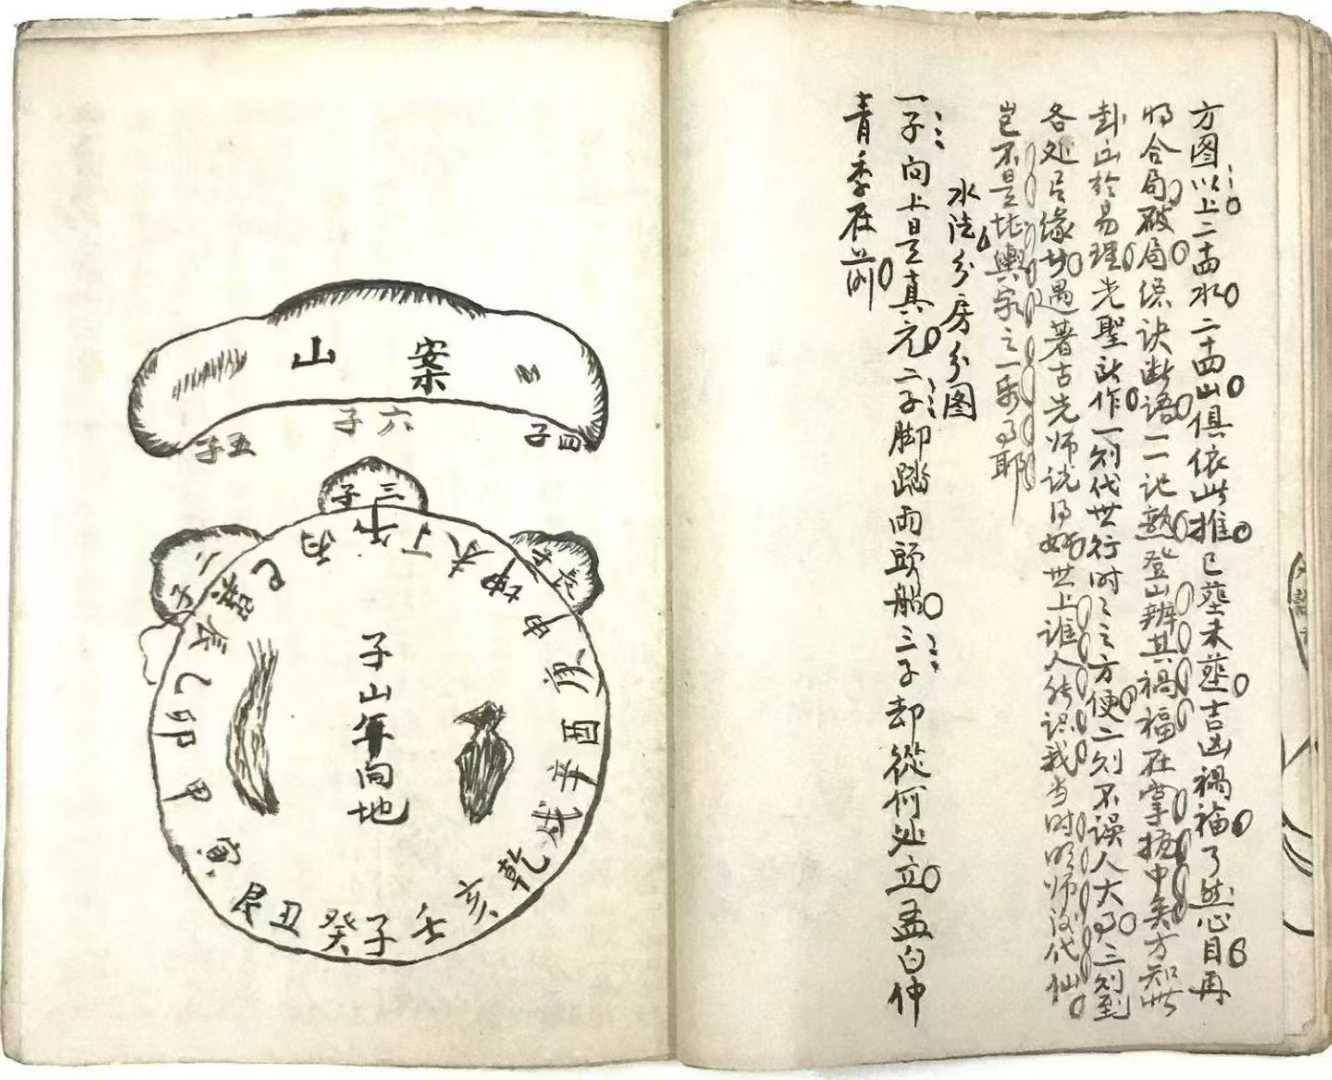 方图以上二十四水二十四山俱依此推已塟未塟吉凶禍福了然心目再
将合局破局總诀断語一一记熟登山辨其禍福在掌握中矣方知此
卦出於易理先聖所作一则代世行时之方便二则不误人大事三则到
各处吕缘妙遇著古先师説得好世上谁人能识我当时明师後代仙
岂不是堪輿家之一乐事耶
水法分房分图
一子向上是真元二子脚踏兩頭船三子却從何处立孟白仲
青季在前
案山
六子
五子
四子
三子
二子
子山午向地
丙午丁未坤申庚酉辛戌乾亥壬子癸丑艮寅甲卯乙辰巽巳